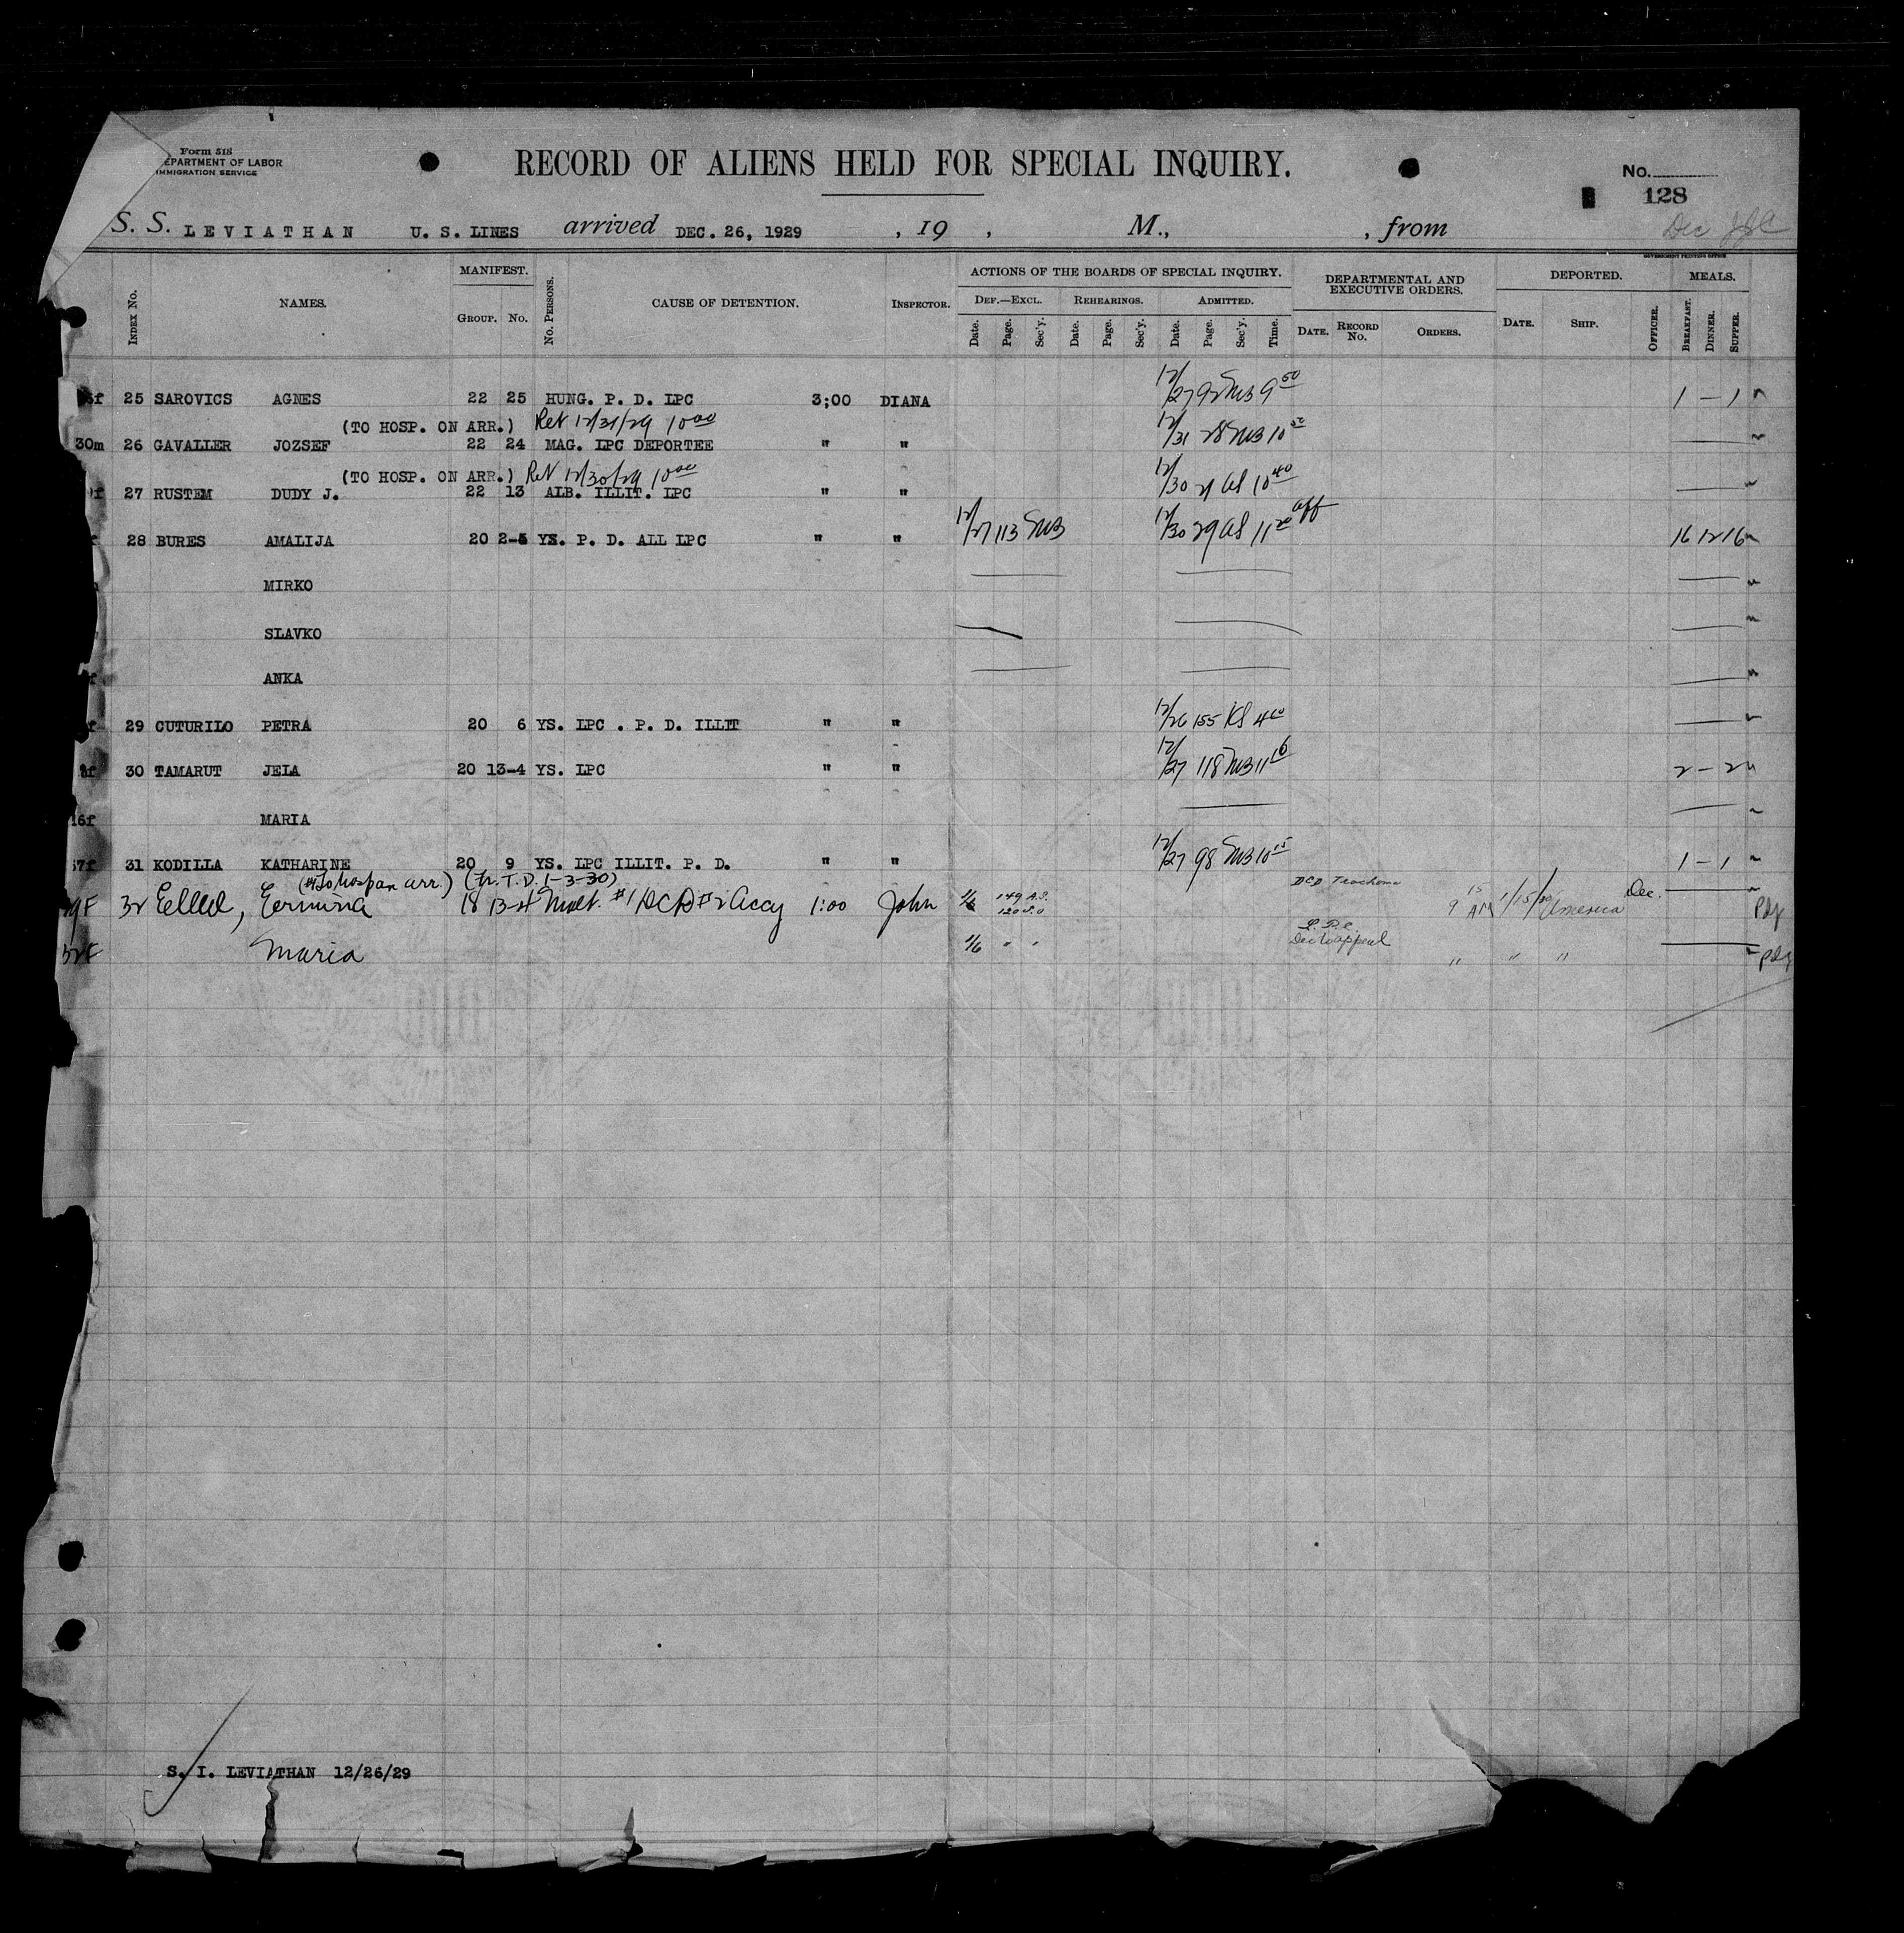 Form 518
DEPARTMENT OF LABOR
IMMIGRATION SERVICE
RECORD OF ALIENS HELD FOR SPECIAL INQUIRY.
No.
128
S. S. LEVIATHAN U. S. LINES arrived DEC. 26, 1929 , 19 , M., , from
Dec
GOVERNMENT PRINTING OFFICE
INDEX NO. NAMES. MANIFEST. GROUP. NO. NO. PERSONS. CAUSE OF DETENTION. INSPECTOR. ACTIONS OF THE BOARDS OF SPECIAL INQUIRY. DEPARTMENTAL AND EXECUTIVE ORDERS. DEPORTED. MEALS.
DEF.—EXCL. REHEARINGS. ADMITTED.
Date. Page. Sec'y. Date. Page. Sec'y. Date. Page. Sec'y. Time. DATE. RECORD NO. ORDERS. DATE. SHIP. OFFICER. BREAKFAST. DINNER. SUPPER.
f 25 SAROVICS AGNES 22 25 HUNG. P. D. LPC 3;00 DIANA 12/27 92 SMB 9 50 1 – 1
(TO HOSP. ON ARR.) Ret 12/31/29 10 00
30m 26 GAVALLER JOZSEF 22 24 MAG. LPC DEPORTEE " " 12/31 28 SMB 10
(TO HOSP. ON ARR.) Ret 12/30/29 10 00
f 27 RUSTEM DUDY J. 22 13 ALB. ILLIT. LPC " " 12/30 21 AS 10 40
28 BURES AMALIJA 20 2-5 YS. P. D. ALL LPC " " 12/27 113 SMB 12/30 29 AS 11 20 16 12 16
MIRKO
SLAVKO
f ANKA
f 29 CUTURILO PETRA 20 6 YS. LPC . P. D. ILLIT " " 12/26 155 KS 4
f 30 TAMARUT JELA 20 13-4 YS. LPC " " 12/27 118 SMB 11 2 – 2
16f MARIA
57f 31 KODILLA KATHARINE 20 9 YS. LPC ILLIT. P. D. " " 12/27 98 SMB 10 15 1 – 1
(#1 To hosp on arr.) (Fr. T. D. 1-3-30) DCD Trachoma
F 32 Ermina 18 13-14 #1 DCD #2 Accy 1:00 John 1/6 149 A.S. 9 15 AM 1/15/30 America Dec.
120
L.P.C.
F Maria 1/6 " " " " "
S. I. LEVIATHAN 12/26/29